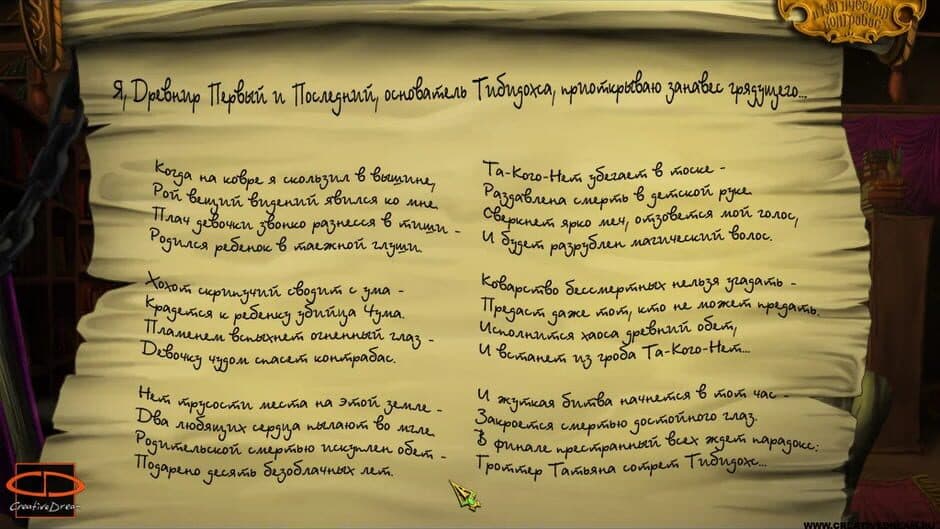 Магический
контрабас
Я, Древнир Первый и Последний, основатель Тибидохса, приоткрываю занавес грядущего...
Когда на ковре я скользил в вышине,
Рой вещий видений явился ко мне.
Плач девочки звонко разнесся в тиши -
Родился ребенок в таежной глуши.
Хохот скрипучий сводит с ума -
Крадется к ребенку убийца Чума.
Пламенем вспыхнет огненный глаз -
Девочку чудом спасет контрабас.
Нет трусости места на этой земле -
Два любящих сердца пылают во мгле.
Родительской смертью искуплен обет -
Подарено десять безоблачных лет.
Та-Кого-Нет убегает в тоске -
Раздавлена смерть в детской руке.
Сверкнет ярко меч, отзовется мой голос,
И будет разрублен магический волос.
Коварство бессмертных нельзя угадать -
Предаст даже тот, кто не может предать.
Исполнится хаоса древний обет,
И встанет из гроба Та-Кого-Нет...
И жуткая битва начнется в тот час -
Закроется смертью достойного глаз.
В финале престранный всех ждет парадокс:
Гроттер Татьяна сотрет Тибидохс...
CreativeDrea